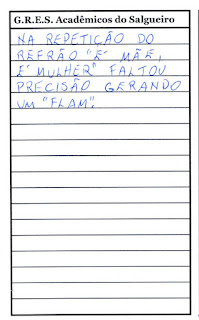 G.R.E.S. Acadêmicos do Salgueiro
NA REPETIÇÃO DO
REFRÃO "É MÃE,
É MULHER" FALTOU
PRECISÃO GERANDO
UM "FLAM".